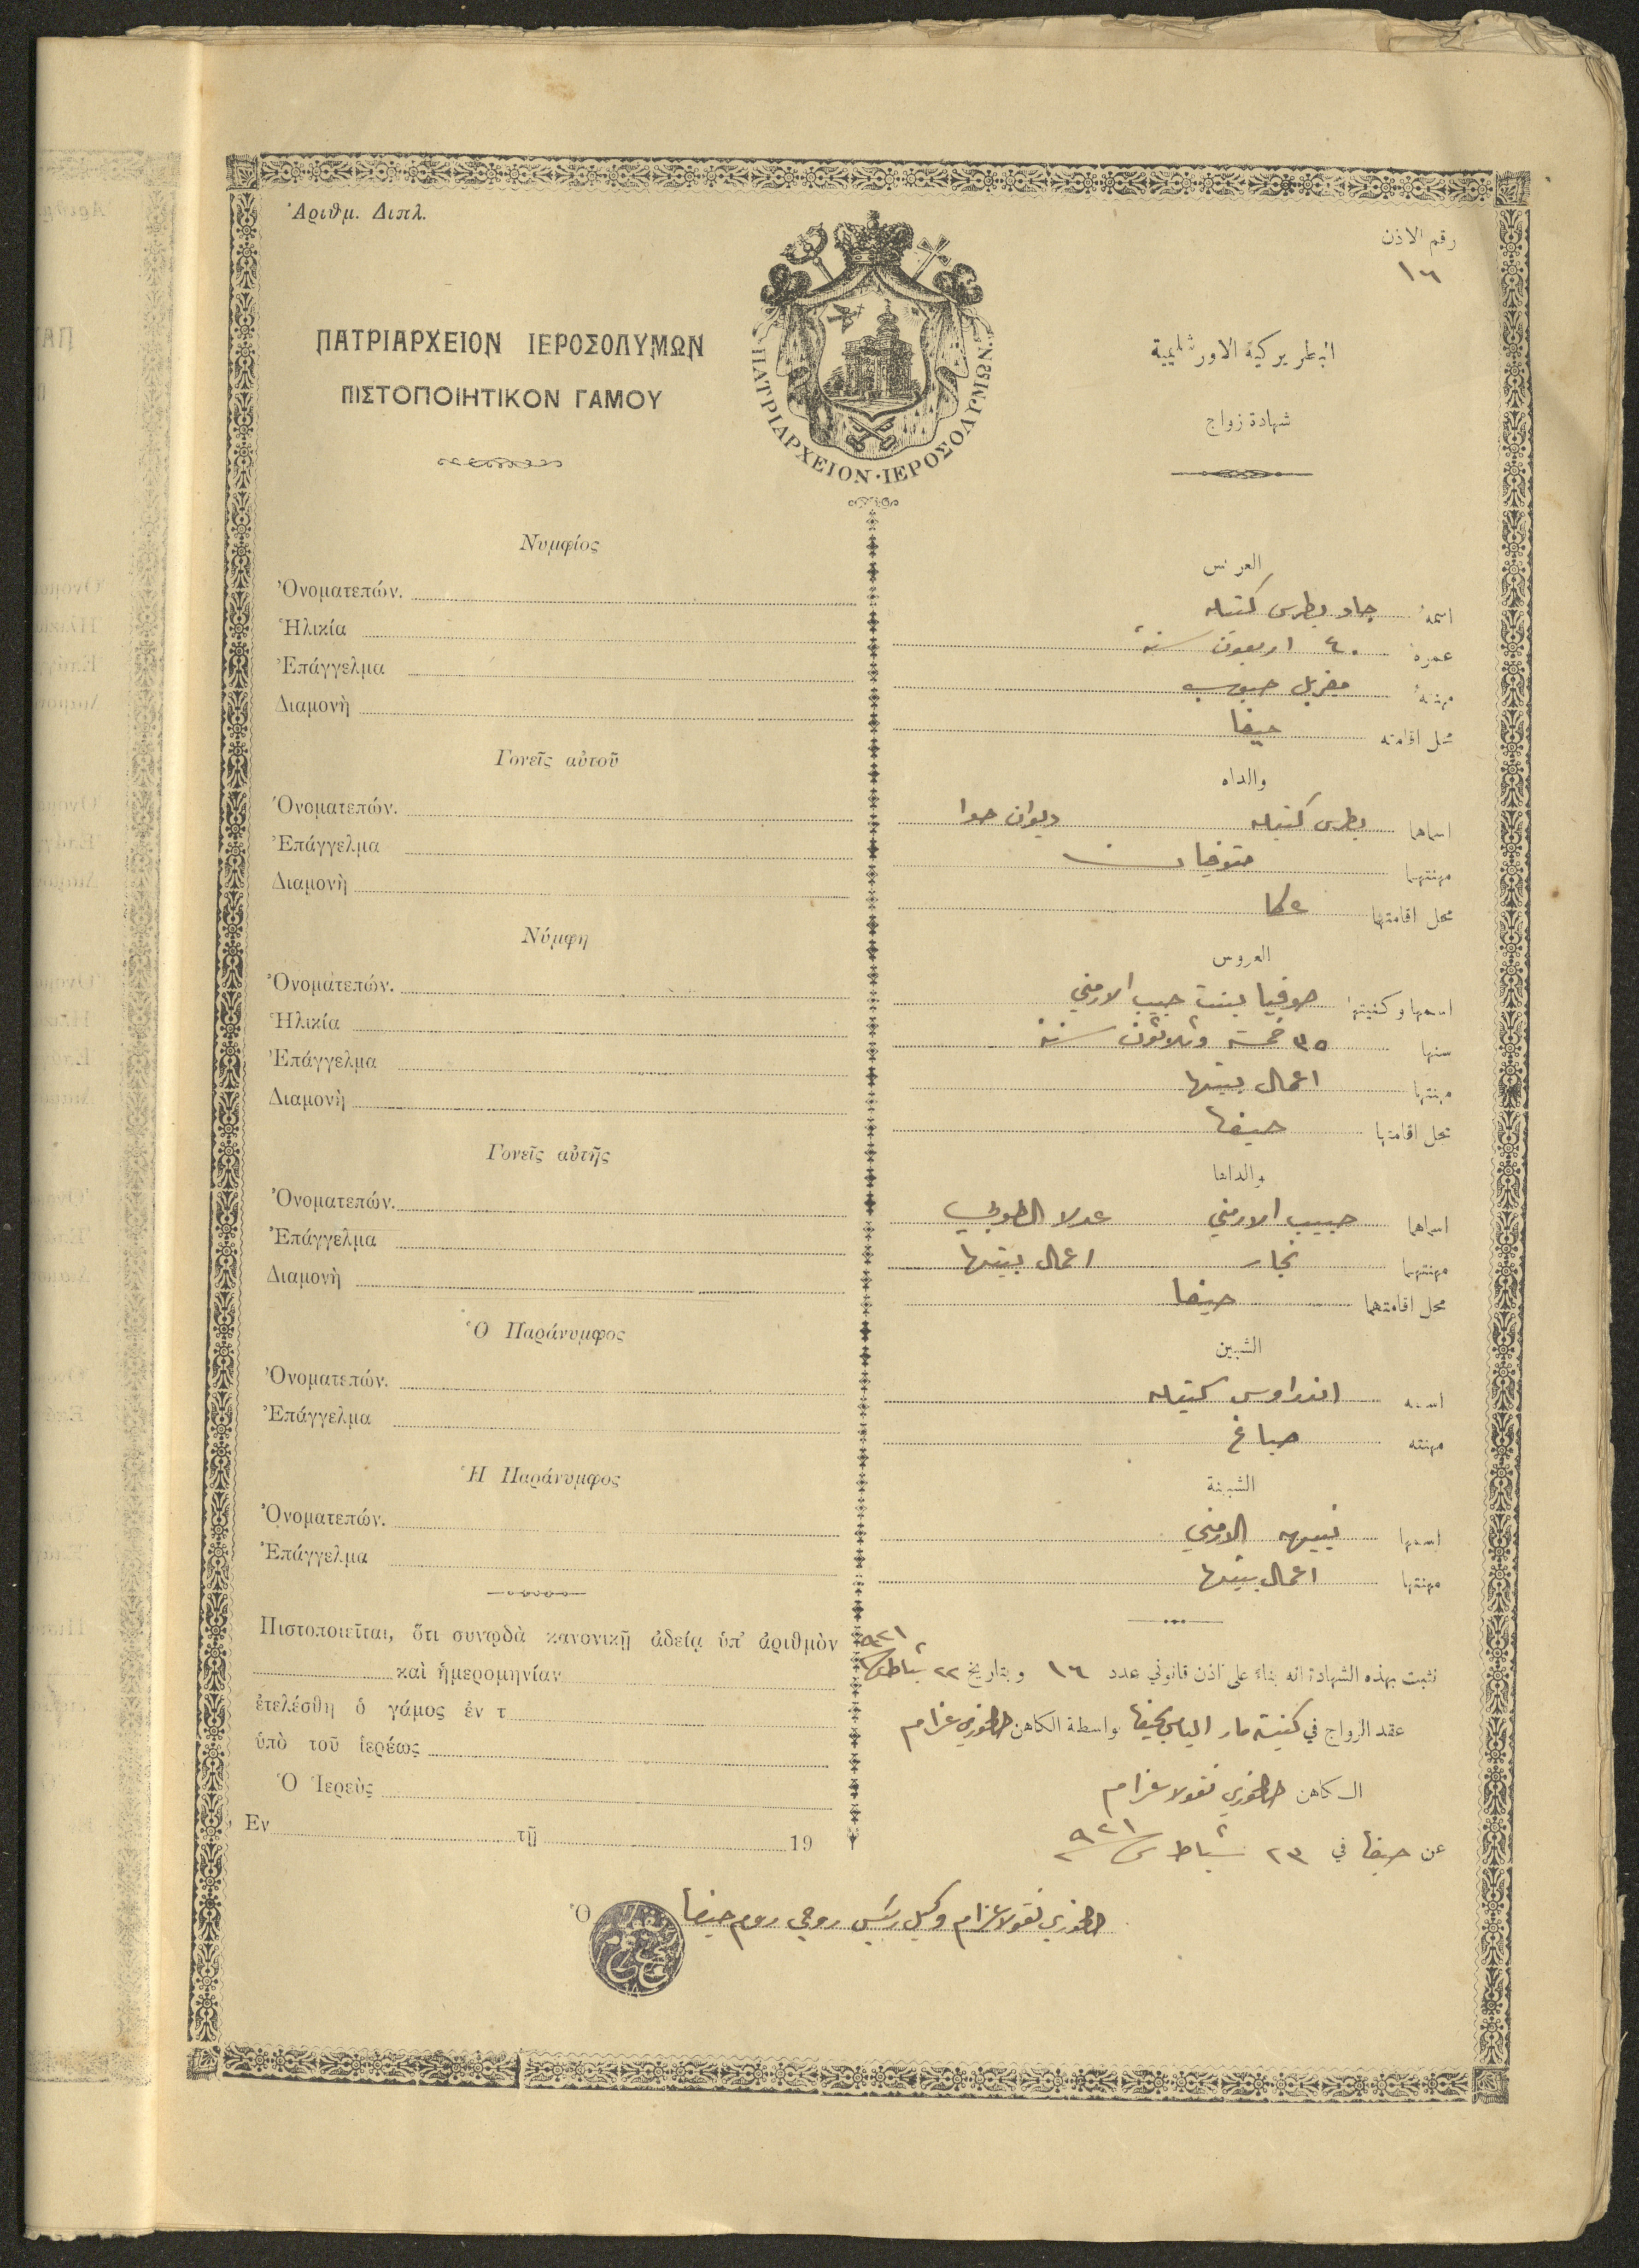 Ἀριθμ. Διπλ.
رقم الاذن
١٦
ΠΑΤΡΙΑΡΧΕΙΟΝ ΙΕΡΟΣΟΛΥΜΩΝ
البطريركية الاورشليمية
ΠΙΣΤΟΠΟΙΗΤΙΚΟΝ ΓΑΜΟΥ
شهادة زواج
ΠΑΤΡΙΑΡΧΕΙΟΝ·ΙΕΡΟΣΟΛΥΜΩΝ
Νυμφίος
Ὀνοματεπών.
Ἡλικία
Ἐπάγγελμα
Διαμονὴ
Γονεῖς αὐτοῦ
Ὀνοματεπών.
Ἐπάγγελμα
Διαμονὴ
Νύμφη
Ὀνοματεπών.
Ἡλικία
Ἐπάγγελμα
Διαμονὴ
Γονεῖς αὐτῆς
Ὀνοματεπών.
Ἐπάγγελμα
Διαμονὴ
Ὁ Παράνυμφος
Ὀνοματεπών.
Ἐπάγγελμα
Ἡ Παράνυμφος
Ὀνοματεπών.
Ἐπάγγελμα
Πιστοποιεῖται, ὅτι συνῳδὰ κανονικῇ ἀδείᾳ ὑπ' ἀριθμὸν
καὶ ἡμερομηνίαν
ἐτελέσθη ὁ γάμος ἐν τ
ὑπὸ τοῦ ἱερέως
Ὁ Ἱερεὺς
Ἐν τῇ 19
Ὁ
العريس
اسمهُ جاد بطرس كتيله
عمرهُ ٤٠ اربعون سنة
مهنتهُ مغربل حبوب
محل اقامته حيفا
والداه
اسماهما بطرس كتيله حوا
مهنتهما متوفيان
محل اقامتهما عكا
العروس
اسمها وكنيتها صوفيا بنت حبيب الارمني
سنها ٣٥ خمسة وثلاثون سنة
مهنتها اعمال بيتها
محل اقامتها حيفا
والداها
اسماهما حبيب الارمني عدلا الطوبي
مهنتهما نجار اعمال بيتها
محل اقامتهما حيفا
الشبين
اسمه اندراوس كتيله
مهنته صباغ
الشبينة
اسمها نبيهه الارمني
مهنتها اعمال بيتها
نثبت بهذه الشهادة انه بناءً على اذن قانوني عدد ١٦ وبتاريخ ٢٢ شباط سنة ٩٢١
عقد الزواج في كنيسة مار الياس بحيفا بواسطة الكاهن الخوري عزام
الكاهن الخوري نقولا عزام
عن حيفا في ٢٣ شباط سنة ٩٢١
الخوري نقولا عزام وكيل رئيس روحي روم حيفا